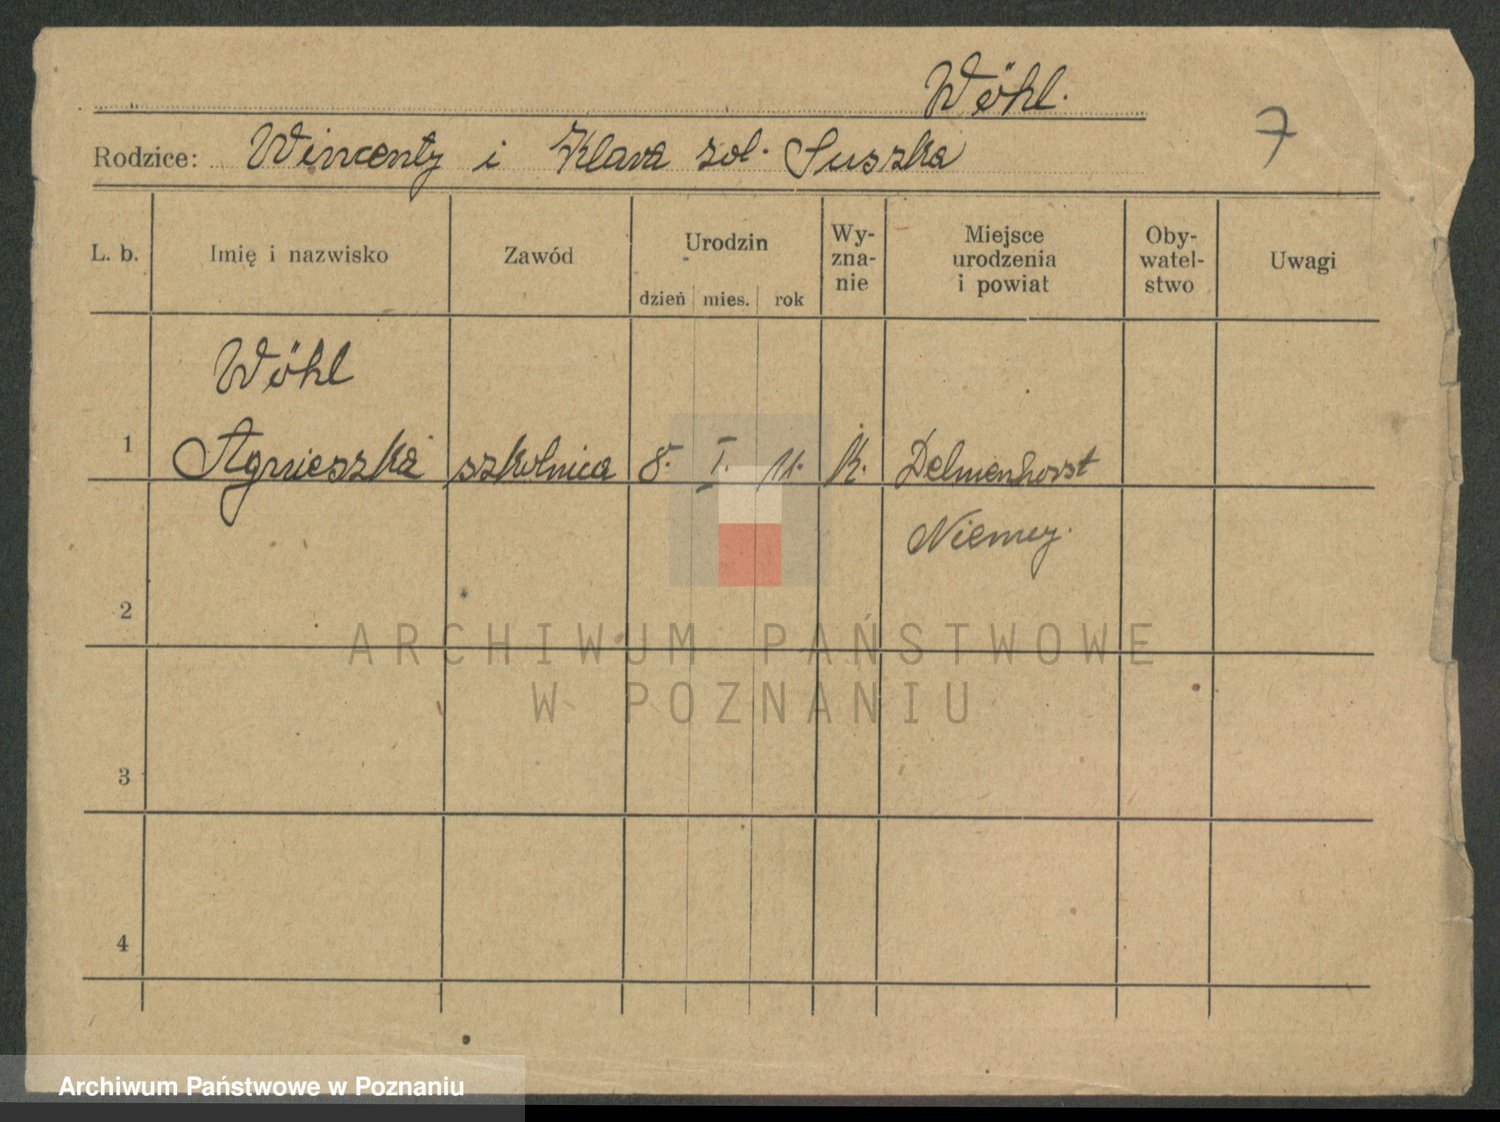 Wöhl.
7
Rodzice: Wincenty i Klara zol. Suszka
L. b. Imię i nazwisko Zawód Urodzin dzień mies. rok Wy-zna-nie Miejsce urodzenia i powiat Oby-watel-stwo Uwagi
Wöhl
1 Agnieszka szkolnica 8. I. 11. K. Delmenhorst
Niemcy.
2
ARCHIWUM PAŃSTWOWE
W POZNANIU
3
4
Archiwum Państwowe w Poznaniu